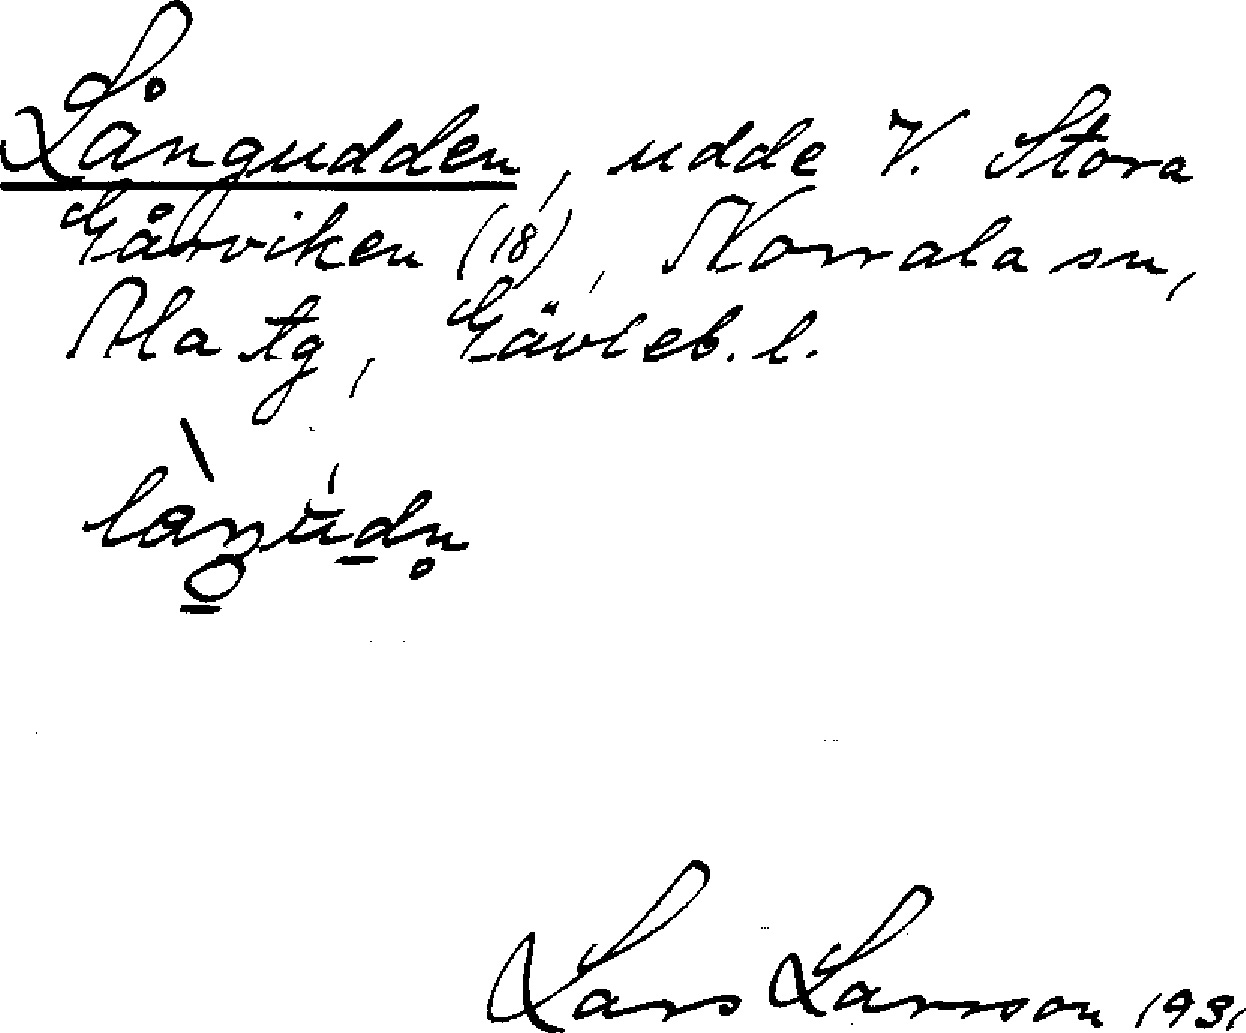 Långudden, udde V. Stora
Gåsviken (18), Norrala sn,
Ala tg, Gävleb. l.
Lars Larsson 1931